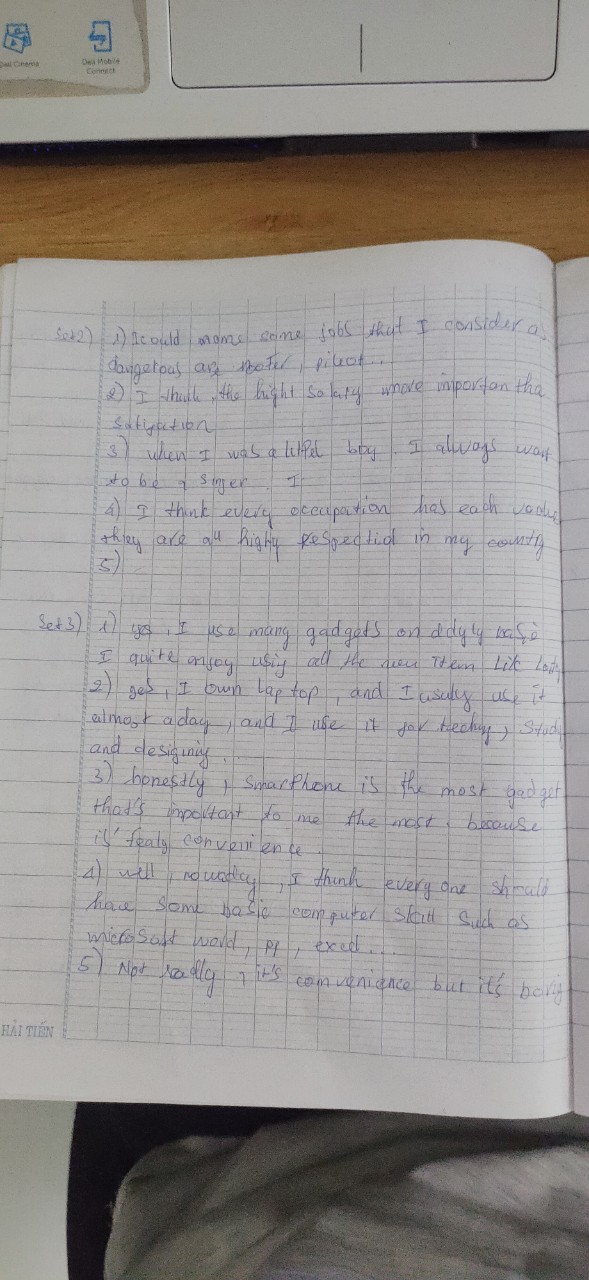 Deli Cinema
Dell Mobile
Connect
Set2) 1) I could name some jobs that I consider as
dangerous are , pileot...
2) I think, the hight salary more importan tha
satisfation
3) when I was a littel boy. I always want
to be a singer. I
4) I think every occupation has each value
they are all highy respectid in my country
5)
Set3) 1) yes, I use many gadgets on ddyly
I quite enjoy usig all the new Item Lik
2) yes, I own Lap top, and I usualy use it
almost aday, and I use it for teching, study
and designig...
3) honestly, smartPhone is the most gadget
that's important to me the most, because
is' realy convenience.
4) well, nowaday, I think every one should
have some basic computer skill such as
microsoft word, pp, excel...
5) Not really, it's convenience but it's borig
HẢI TIẾN